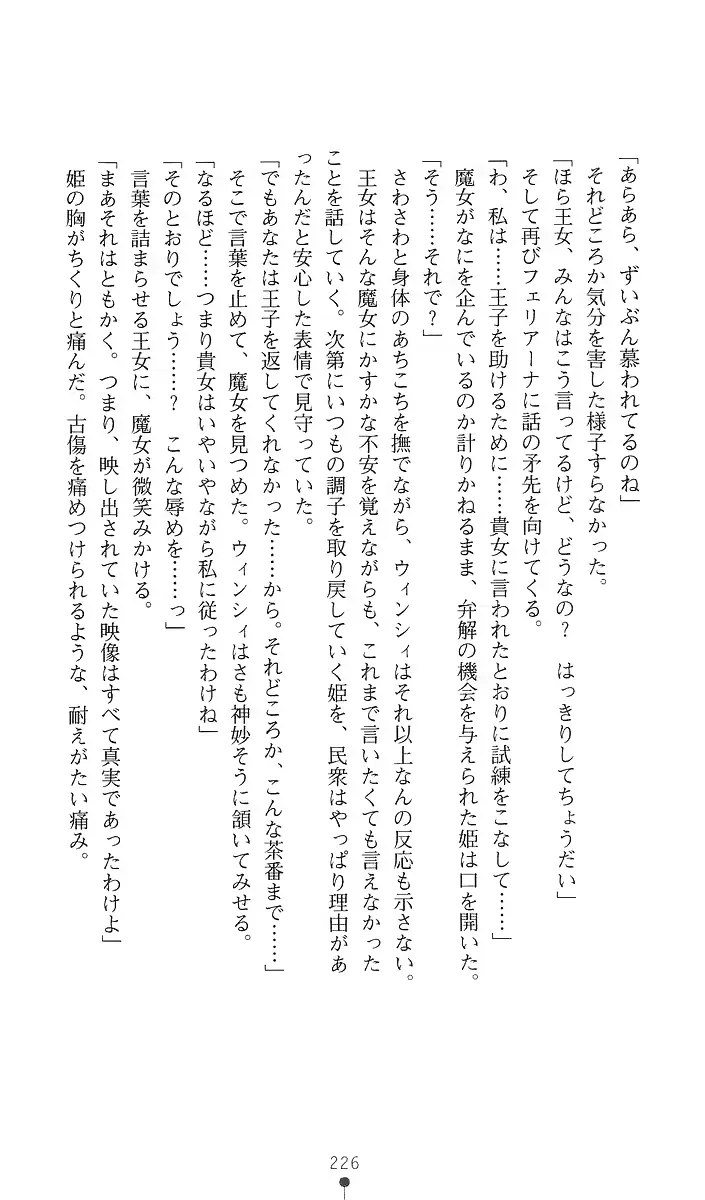 「あらあら、ずいぶん慕われてるのね」
それどころか気分を害した様子すらなかった。
「ほら王女、みんなはこう言ってるけど、どうなの？　はっきりしてちょうだい」
そして再びフェリアーナに話の矛先を向けてくる。
「わ、私は……王子を助けるために……貴女に言われたとおりに試練をこなして……」
魔女がなにを企んでいるのか計りかねるまま、弁解の機会を与えられた姫は口を開いた。
「そう……それで？」
さわさわと身体のあちこちを撫でながら、ウィンシィはそれ以上なんの反応も示さない。
王女はそんな魔女にかすかな不安を覚えながらも、これまで言いたくても言えなかった
ことを話していく。次第にいつもの調子を取り戻していく姫を、民衆はやっぱり理由があ
ったんだと安心した表情で見守っていた。
「でもあなたは王子を返してくれなかった……から。それどころか、こんな茶番まで……」
そこで言葉を止めて、魔女を見つめた。ウィンシィはさも神妙そうに頷いてみせる。
「なるほど……つまり貴女はいやいやながら私に従ったわけね」
「そのとおりでしょう……？　こんな辱めを……っ」
言葉を詰まらせる王女に、魔女が微笑みかける。
「まあそれはともかく。つまり、映し出されていた映像はすべて真実であったわけよ」
姫の胸がちくりと痛んだ。古傷を痛めつけられるような、耐えがたい痛み。
226